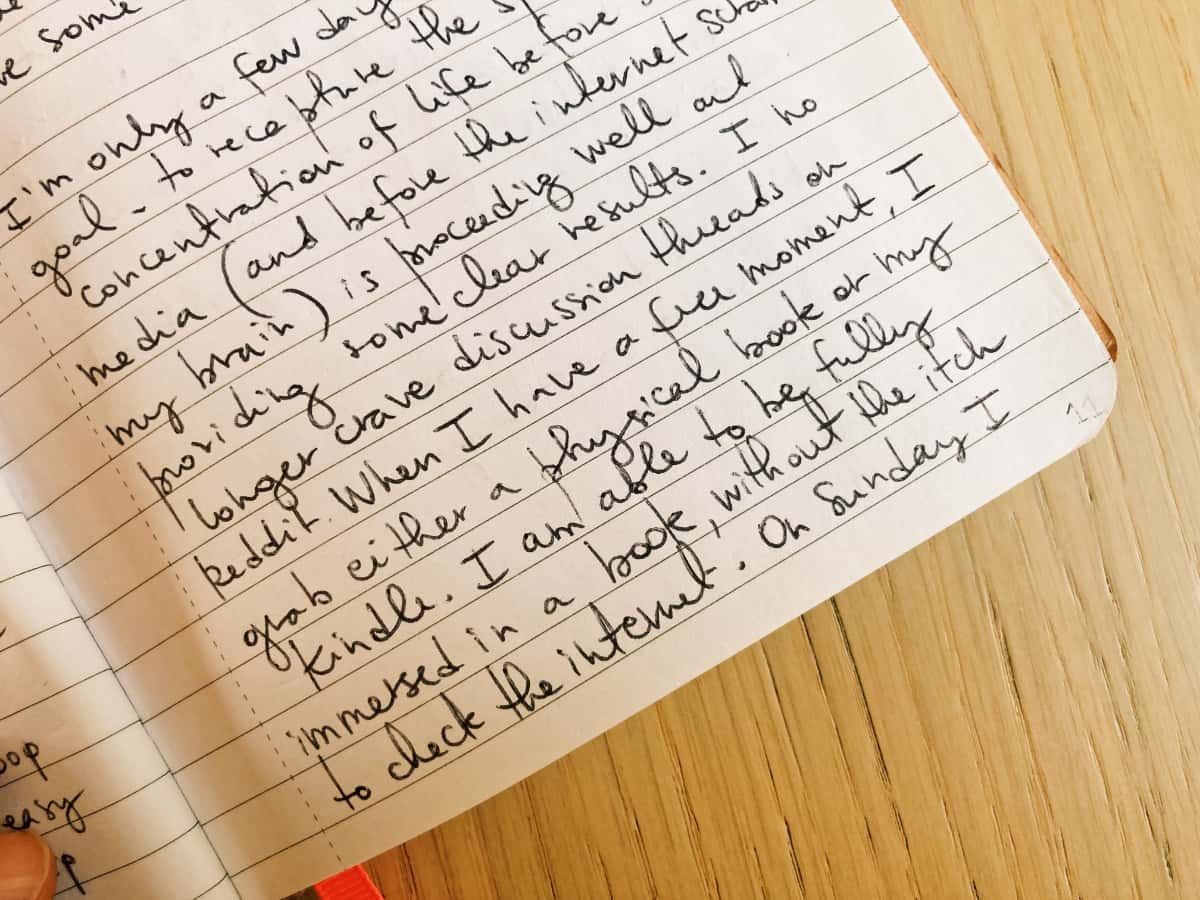 some
I'm only a few day
goal - to recapture the
concentration of life before
media (and before the internet
my brain) is proceeding well and
providing some clear results. I no
longer crave discussion threads on
Reddit. When I have a free moment, I
grab either a physical book or my
Kindle. I am able to be fully
immersed in a book, without the itch
to check the internet. On Sunday I
11
oop
easy